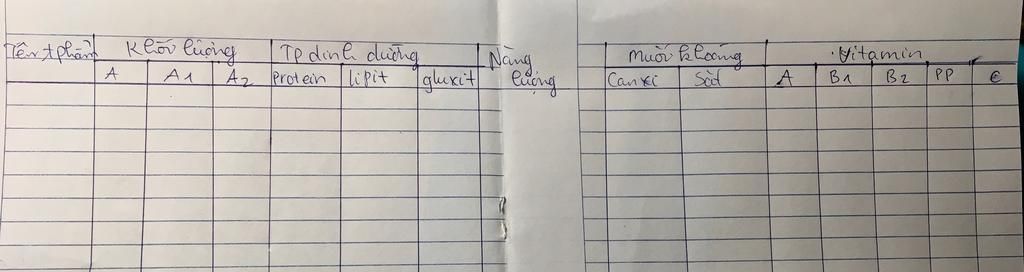 Tên t phẩm Khối lượng TP dinh dưỡng Năng lượng Muối khoáng Vitamin
A A1 A2 Protein lipit gluxit Canxi Sắt A B1 B2 PP C